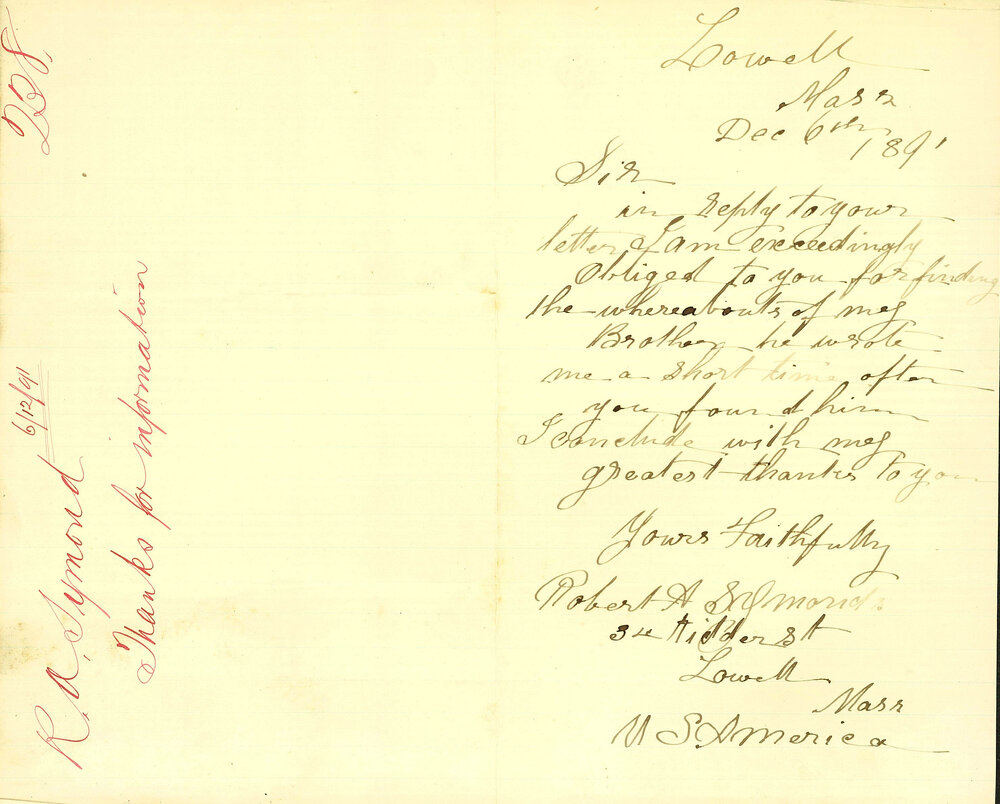 228
R. A. Symond 6/12/91
Thanks for information
Lowell
Mass
Dec 6th 1891
Sir
in reply to your
letter I am exceedingly
Obliged to you for finding
the whereabouts of my
Brother he wrote
me a short time after
you found him
I conclude with my
greatest thanks to you
Yours Faithfully
Robert A Symonds
34 Kidder St
Lowell
Mass
U S America